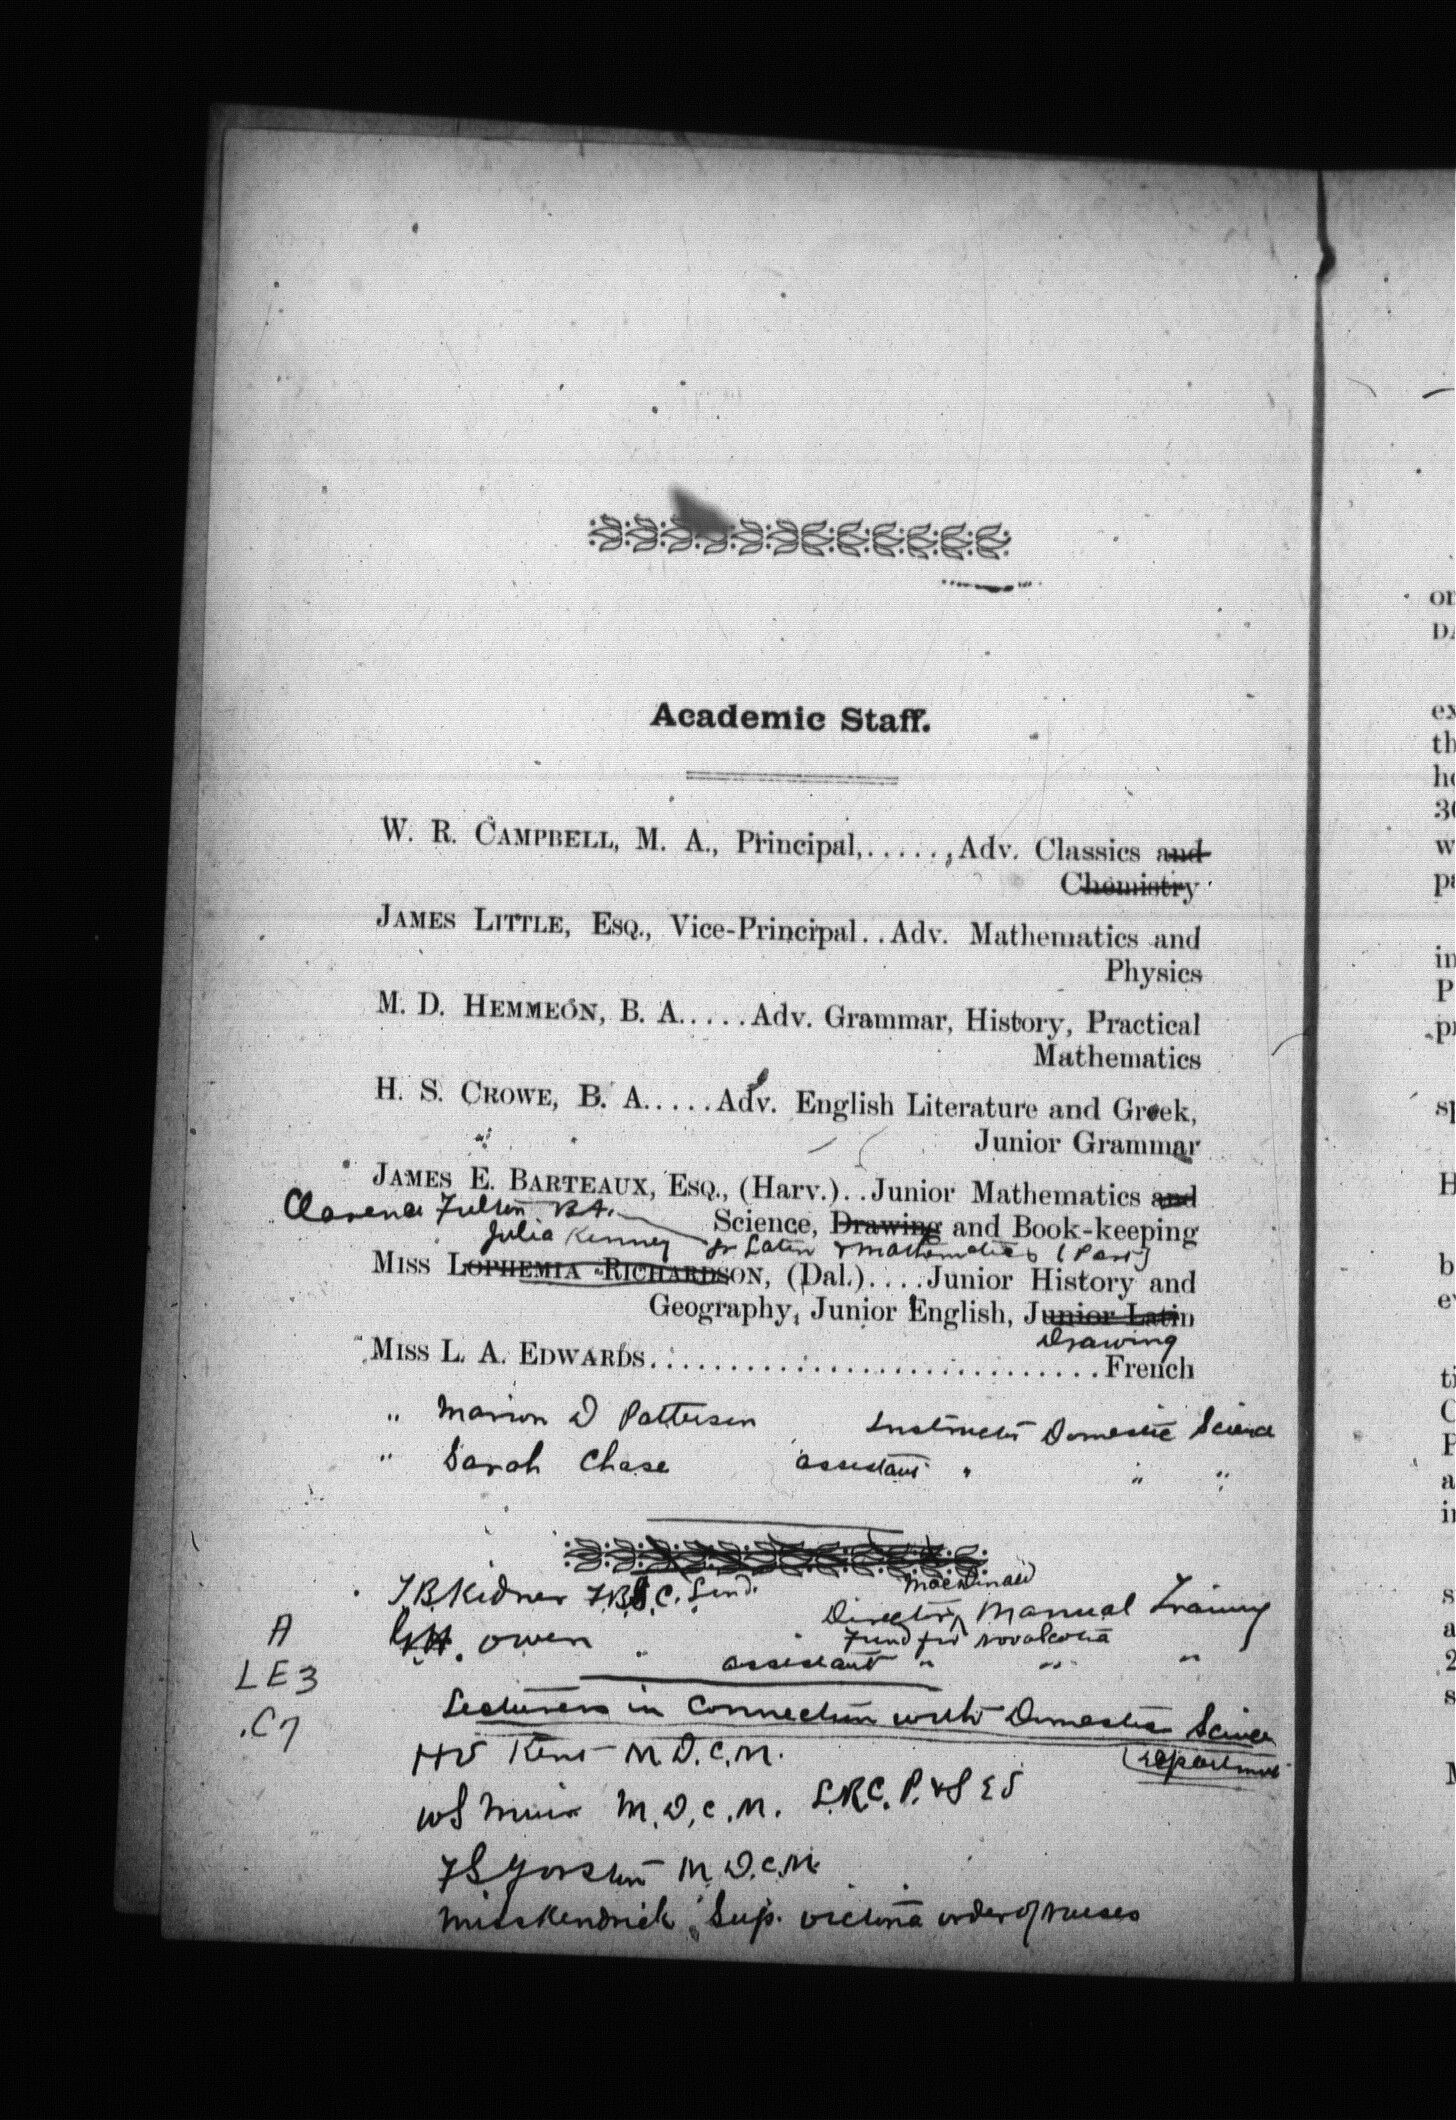 Academic Staff.
W. R. CAMPBELL, M. A., Principal,......,Adv. Classics and
Chemistry
JAMES LITTLE, ESQ., Vice-Principal..Adv. Mathematics and
Physics
M. D. HEMMEON, B. A.....Adv. Grammar, History, Practical
Mathematics
H. S. CROWE, B. A.....Adv. English Literature and Greek,
Junior Grammar
JAMES E. BARTEAUX, ESQ., (Harv.)..Junior Mathematics and
Clarence Fulton B A.
Science, Drawing and Book-keeping
Julia Kenney Jr Latin & Mathematics (Part)
MISS LOPHEMIA RICHARDSON, (Dal.)....Junior History and
Geography, Junior English, Junior Latin
Drawing
MISS L. A. EDWARDS.............................French
" Marion D Patterson Instructor Domestic Science
" Sarah Chase assistant " " "
T.B. Kidner F.B.S.C. Lond. MacDonald
Director, Manual Training
Fund for Nova Scotia
Owen
assistant " " "
A
LE3
.C7
Lecturers in Connection with Domestic Science
Department
H V Kent M D. C. M.
W S Muir M. D. C. M. L.R.C. P. & S E
F S Yorston M. D. C. M.
Miss Kendrick Sup. Victoria order of Nurses
or
DA
ex
th
ho
30
w
pa
in
P
pr
sp
H
b
ev
ti
C
P
a
in
s
a
2
s
M